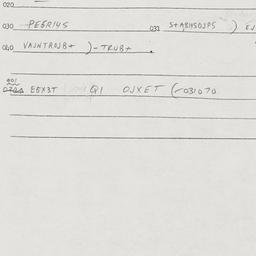 020
030 PEGRI4S 033 S+ARHSOJPS ) EJ
040 VAJNTROJB+ )-TRUB+.
901
E5X3T Q1 OJXET (-031070